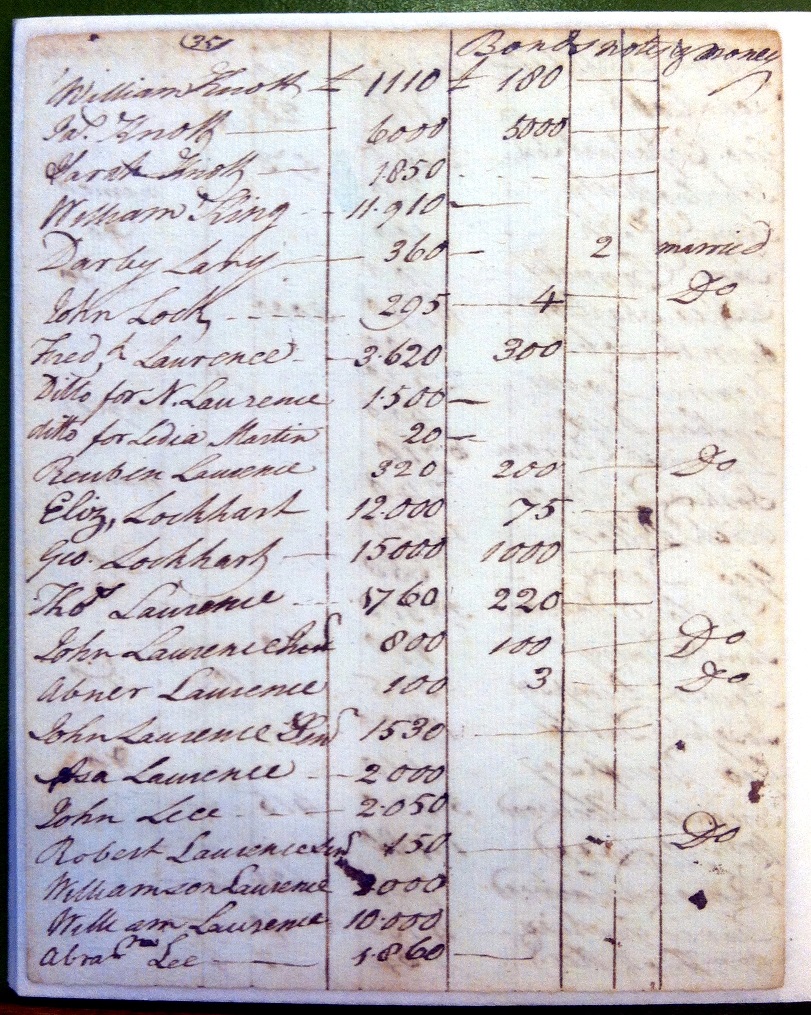 (35) Bonds notes & money
William Knott £ 1110 £ 180
Ja.s Knott 6000 5000
Sarah Knott 1850
William King 11.910
Darby Lany 360 2 married
John Lock 295 4 Do
Fred.k Laurence 3.620 300
Ditto for N. Laurence 1.500
ditto for Lidia Martin 20
Reuben Laurence 320 200 Do
Eliz, Lockhart 12.000 75
Geo. Lockhart 15000 1000
Tho.s Laurence 1760 220
John Laurence Jun.r 800 100 Do
Abner Laurence 100 3 Do
John Laurence Sen.r 1530
Asa Laurence 2000
John Lee 2.050
Robert Laurence 150 Do
Williamson Laurence
William Laurence 10.000
Abra.m Lee 1.860